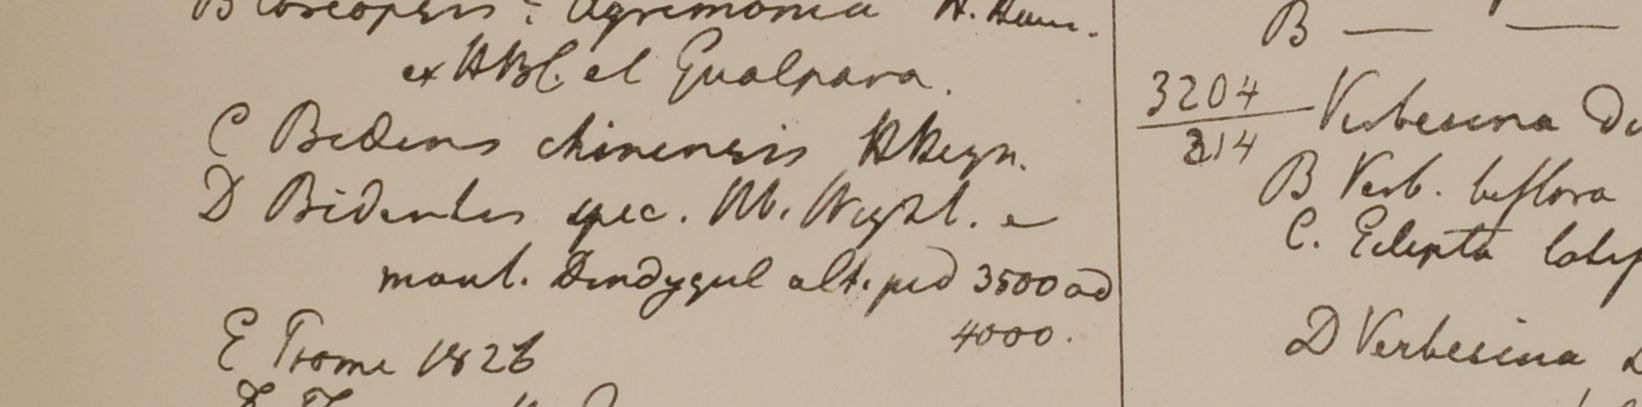 B Coreopsis ? Agrimonia H. Ham.
ex HBC. et Gualpara.
C Bidens chinensis
D Bidentis spec. Hb. Wight. e
mont. Dindygul alt. ped 3500 ad
4000.
E Prome 1826
B — —
3204 Verbesina
214
B Verb. biflora
C. Eclipta
D Verbesina